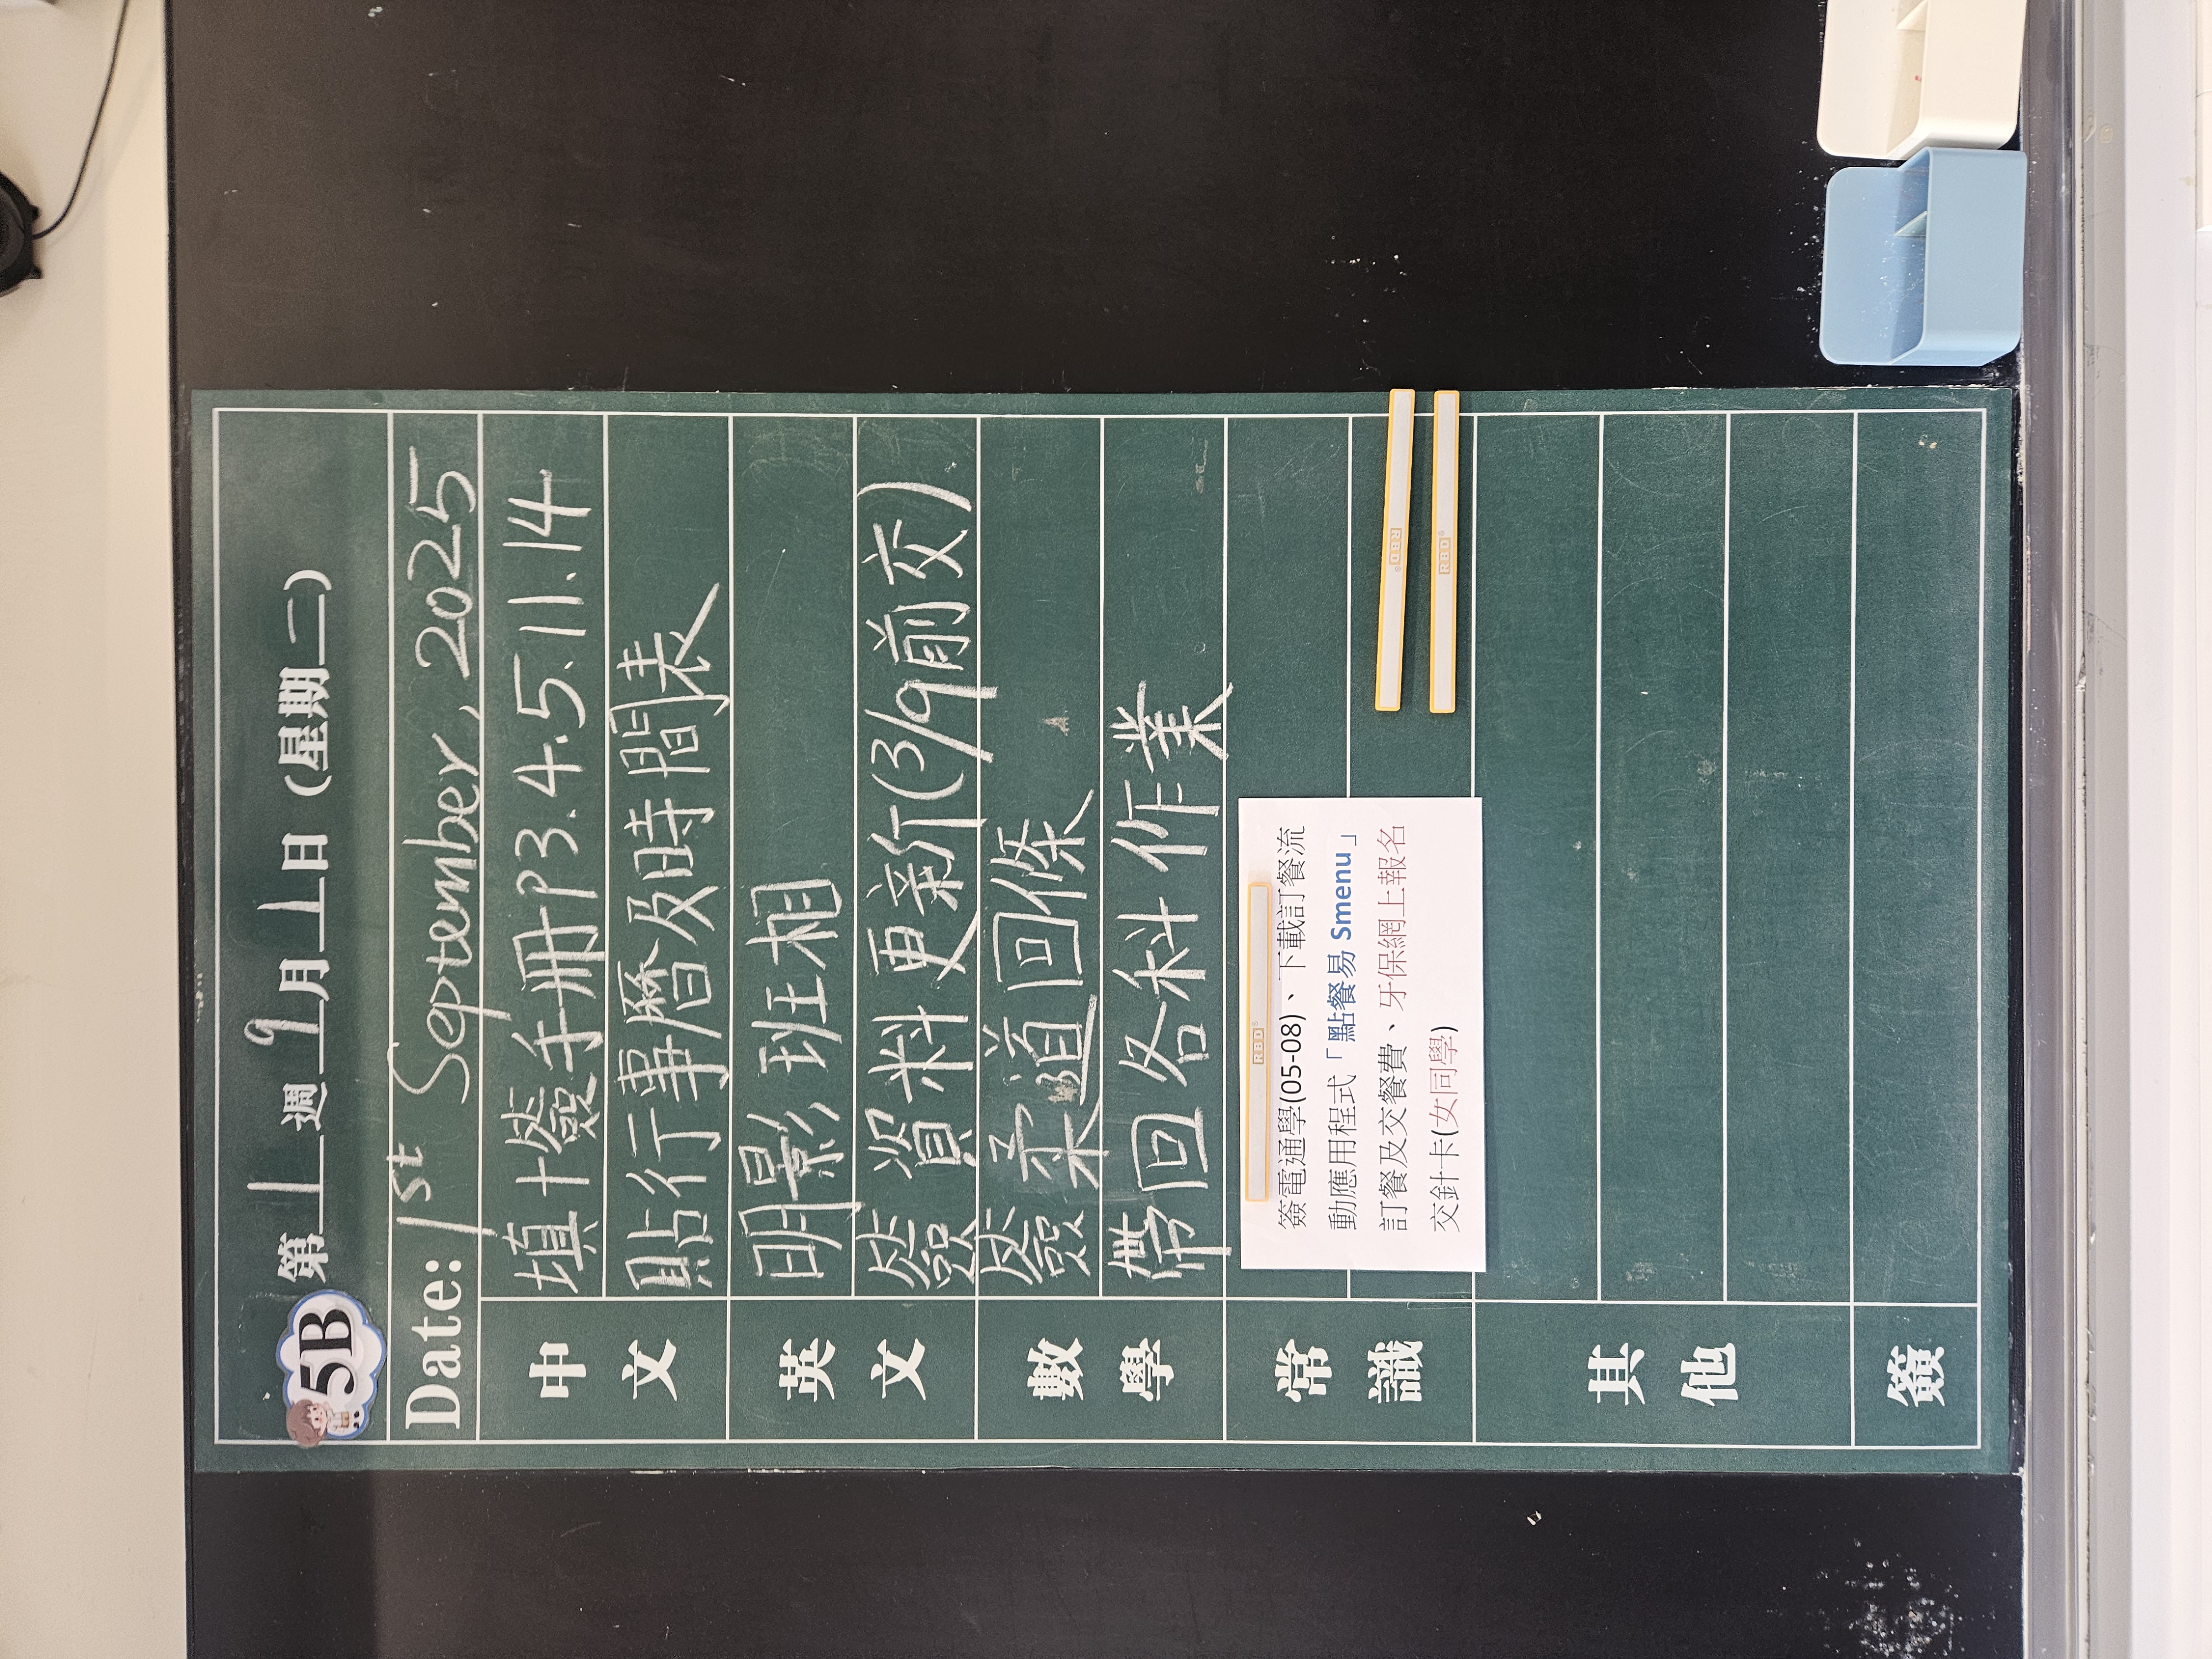 5B 第1週9月1日(星期二)
Date: 1st September, 2025
中文 填+簽手冊P3.4.5.11.14
貼行事曆及時間表
英文 明影班相
簽資料更新(3/9前交)
數學 簽柔道回條
帶回各科作業
常識
簽電通學(05-08)、下載訂餐流
動應用程式「點餐易 Smenu」
訂餐及交餐費、牙保網上報名
交針卡(女同學)
其他
簽
RBD
RBD
RBD